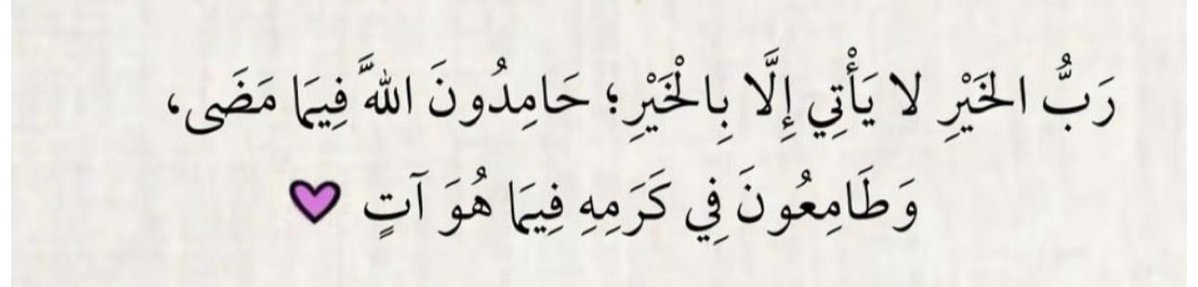 رَبُّ الخَيْرِ لا يَأْتِي إِلَّا بِالْخَيْرِ؛ حَامِدُونَ اللهَّ فِيمَا مَضَى،
وَطَامِعُونَ فِي كَرَمِهِ فِيمَا هُوَ آتٍ 💜